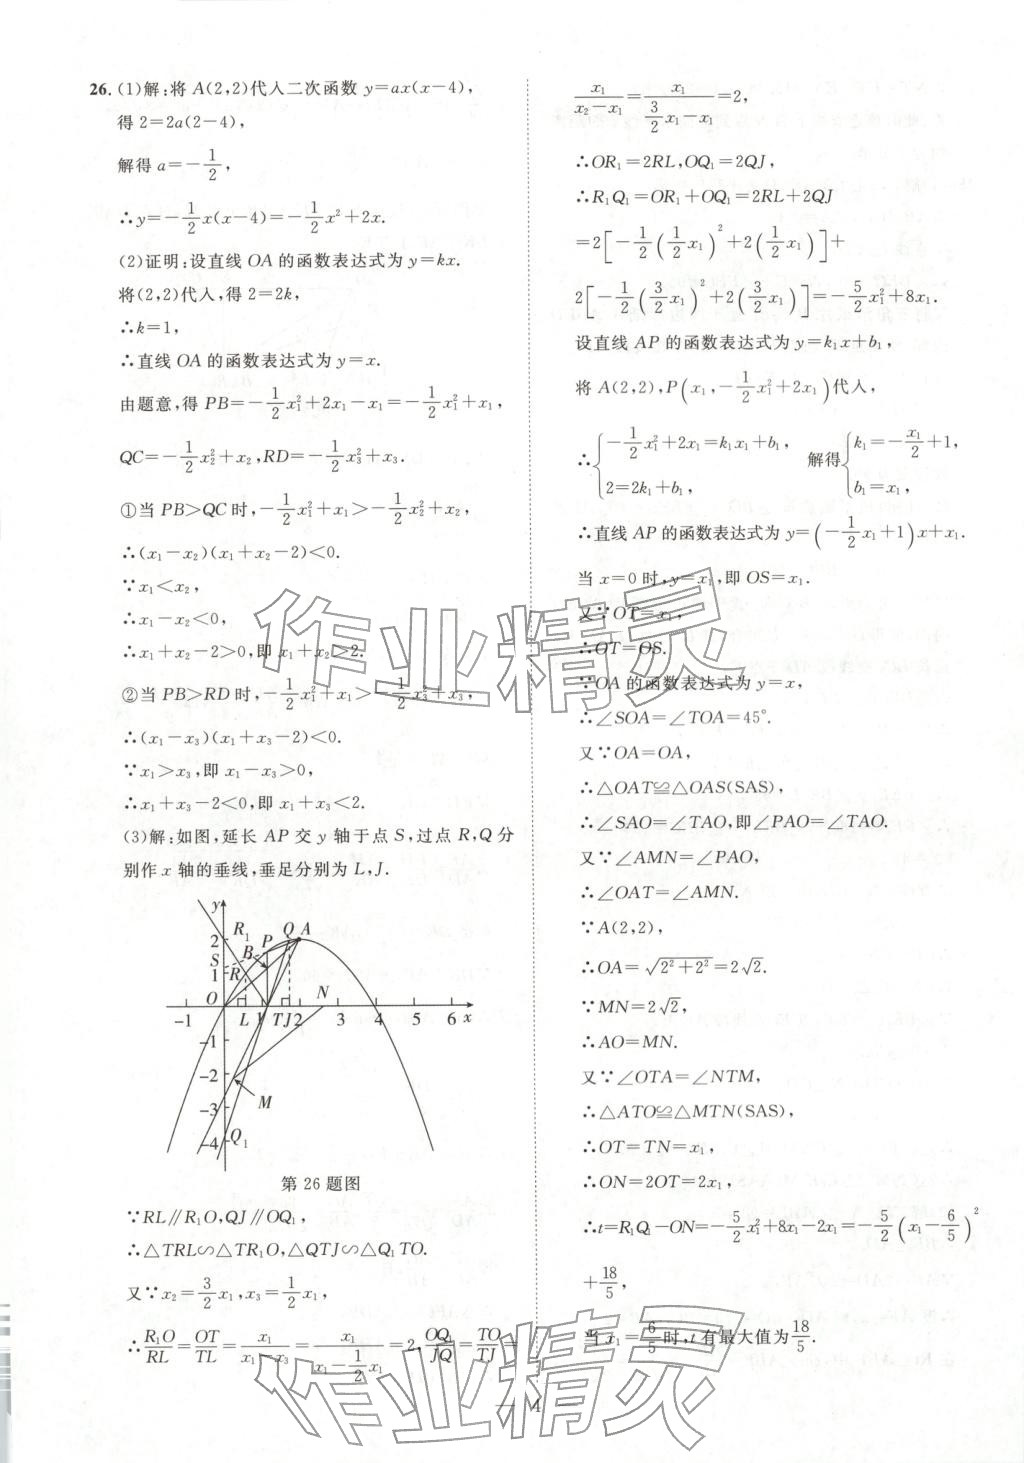 26. (1)解:将 A(2,2)代入二次函数 y=ax(x-4),
得 2=2a(2-4),
解得 a=-1/2,
∴y=-1/2x(x-4)=-1/2x²+2x.
(2)证明:设直线 OA 的函数表达式为 y=kx.
将(2,2)代入,得 2=2k,
∴k=1,
∴直线 OA 的函数表达式为 y=x.
由题意,得 PB=-1/2x₁²+2x₁-x₁=-1/2x₁²+x₁,
QC=-1/2x₂²+x₂,RD=-1/2x₃²+x₃.
①当 PB>QC 时,-1/2x₁²+x₁>-1/2x₂²+x₂,
∴(x₁-x₂)(x₁+x₂-2)<0.
∵x₁<x₂,
∴x₁-x₂<0,
∴x₁+x₂-2>0,即 x₁+x₂>2.
②当 PB>RD 时,-1/2x₁²+x₁>-1/2x₃²+x₃,
∴(x₁-x₃)(x₁+x₃-2)<0.
∵x₁>x₃,即 x₁-x₃>0,
∴x₁+x₃-2<0,即 x₁+x₃<2.
(3)解:如图,延长 AP 交 y 轴于点 S,过点 R,Q 分
别作 x 轴的垂线,垂足分别为 L,J.
y
2 R₁ P Q A
S B
1 R
O N
-1 L 1 T J 2 3 4 5 6 x
-1
-2
M
-3
-4 Q₁
第 26 题图
∵RL∥R₁O,QJ∥OQ₁,
∴△TRL∽△TR₁O,△QTJ∽△Q₁TO.
又∵x₂=3/2x₁,x₃=1/2x₁,
∴R₁O/RL=OT/TL=x₁/(x₁-x₃)=x₁/(x₁-1/2x₁)=2,OQ₁/JQ=TO/TJ=
x₁/(x₂-x₁)=x₁/(3/2x₁-x₁)=2,
∴OR₁=2RL,OQ₁=2QJ,
∴R₁Q₁=OR₁+OQ₁=2RL+2QJ
=2[-1/2(1/2x₁)²+2(1/2x₁)]+
2[-1/2(3/2x₁)²+2(3/2x₁)]=-5/2x₁²+8x₁.
设直线 AP 的函数表达式为 y=k₁x+b₁,
将 A(2,2),P(x₁,-1/2x₁²+2x₁)代入,
∴{-1/2x₁²+2x₁=k₁x₁+b₁, 2=2k₁+b₁, 解得{k₁=-x₁/2+1, b₁=x₁,
∴直线 AP 的函数表达式为 y=(-1/2x₁+1)x+x₁.
当 x=0 时,y=x₁,即 OS=x₁.
又∵OT=x₁,
∴OT=OS.
∵OA 的函数表达式为 y=x,
∴∠SOA=∠TOA=45°.
又∵OA=OA,
∴△OAT≌△OAS(SAS),
∴∠SAO=∠TAO,即∠PAO=∠TAO.
又∵∠AMN=∠PAO,
∴∠OAT=∠AMN.
∵A(2,2),
∴OA=√(2²+2²)=2√2.
∵MN=2√2,
∴AO=MN.
又∵∠OTA=∠NTM,
∴△ATO≌△MTN(SAS),
∴OT=TN=x₁,
∴ON=2OT=2x₁,
∴t=R₁Q₁-ON=-5/2x₁²+8x₁-2x₁=-5/2(x₁-6/5)²
+18/5,
当 x₁=6/5时,t 有最大值为18/5.
4
作业精灵
作业精灵